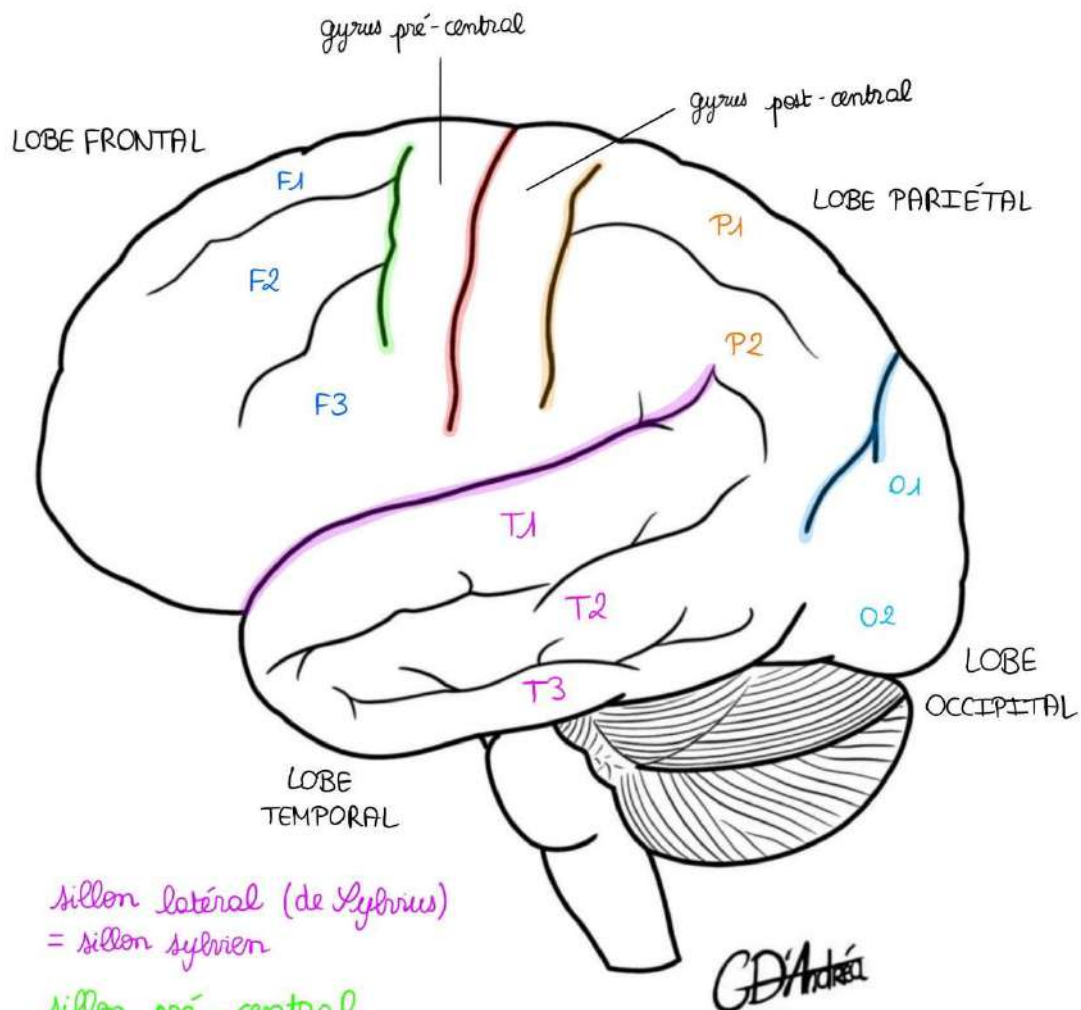 gyrus pré-central
gyrus post-central
LOBE FRONTAL
F1
LOBE PARIÉTAL
P1
F2
P2
F3
O1
T1
T2
O2
T3
LOBE
OCCIPITAL
LOBE
TEMPORAL
sillon latéral (de Sylvius)
= sillon sylvien
GD'Andréa
sillon pré-central